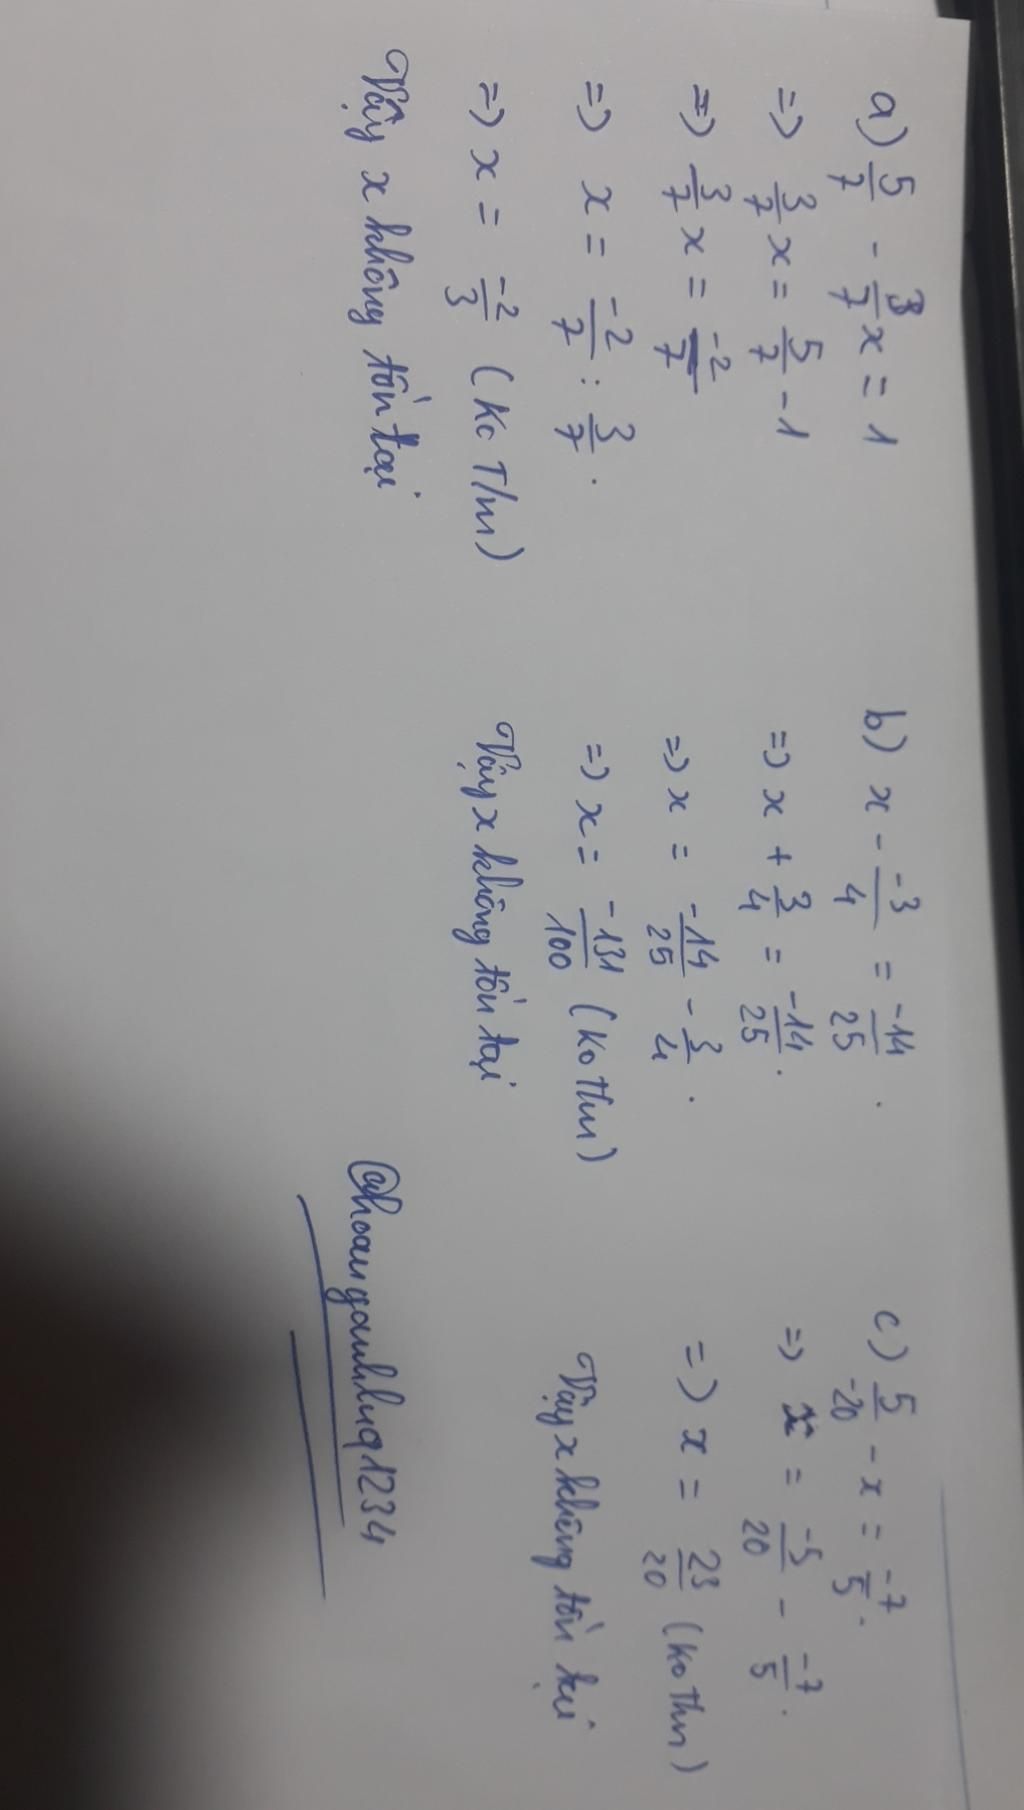 a) 5/7 - 3/7 x = 1
=> 3/7 x = 5/7 - 1
=> 3/7 x = -2/7
=> x = -2/7 : 3/7 .
=> x = -2/3 (Ko T/m)
Vậy x không tồn tại
b) x - -3/4 = -14/25 .
=> x + 3/4 = -14/25 .
=> x = -14/25 - 3/4 .
=> x = -131/100 (Ko t/m)
Vậy x không tồn tại
c) 5/-20 - x = -7/5 .
=> x = -5/20 - -7/5 .
=> x = 23/20 (Ko t/m)
Vậy x không tồn tại